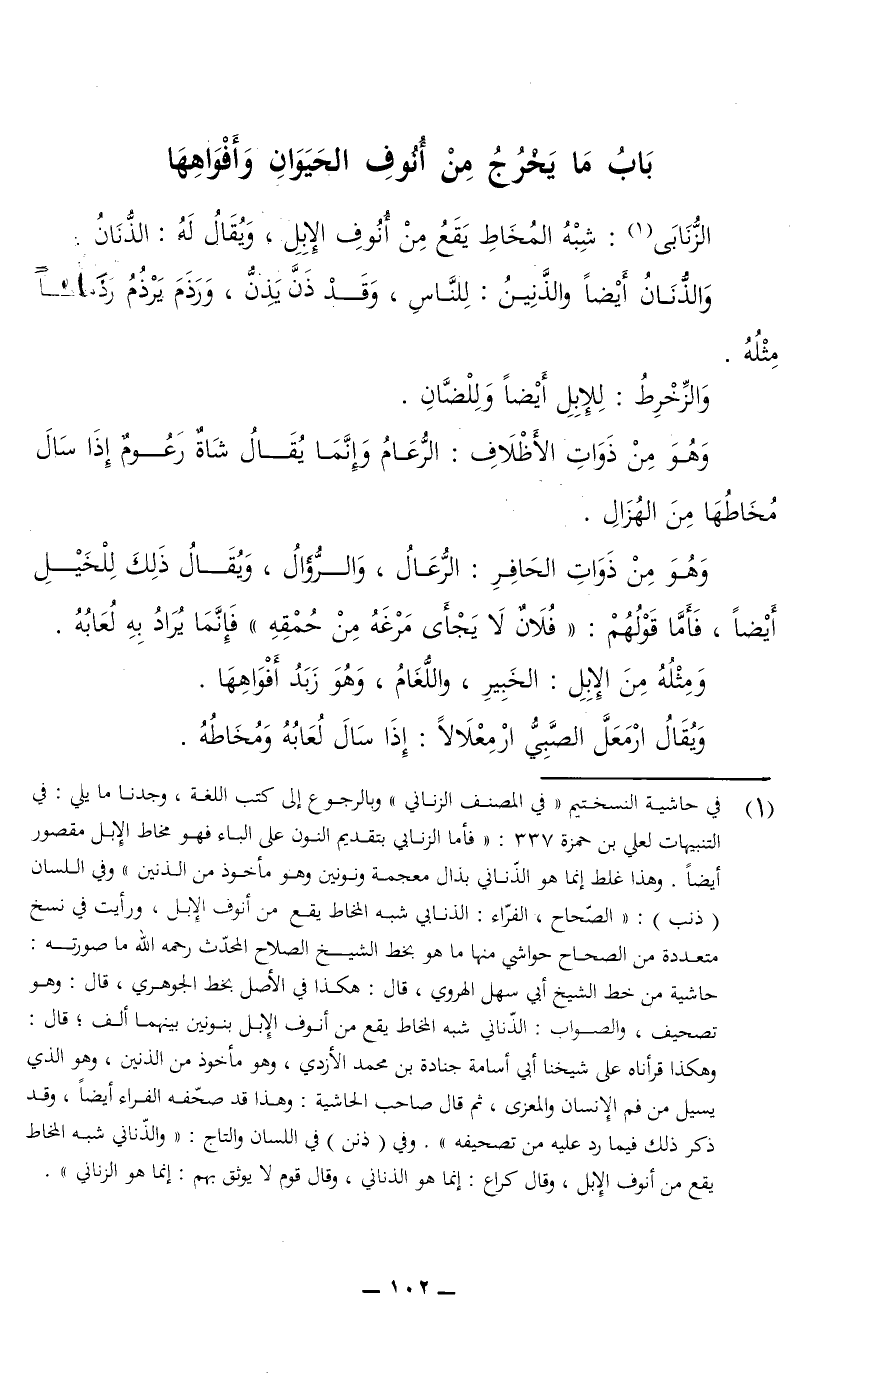 بَابُ مَا يَخْرُجُ مِنْ أُنُوفِ الحَيَوَانِ وَأَفْوَاهِهَا
الزُّنَابَى(١) : شِبْهُ المُخَاطِ يَقَعُ مِنْ أُنُوفِ الإِبِلِ ، وَيُقَالُ لَهُ : الذُّنَانُ .
وَالذُّنَانُ أَيْضاً والذَّنِينُ : لِلنَّاسِ ، وَقَدْ ذَنَّ يَذِنُّ ، وَرَذَمَ يَرْذُمُ
مِثْلُهُ .
وَالزِّخْرِطُ : لِلإِبِلِ أَيْضاً وَلِلضَّانِ .
وَهُوَ مِنْ ذَوَاتِ الأَظْلَافِ : الرُّعَامُ وَإِنَّمَا يُقَالُ شَاةٌ رَعُومٌ إِذَا سَالَ
مُخَاطُهَا مِنَ الهُزَالِ .
وَهُوَ مِنْ ذَوَاتِ الحَافِرِ : الرُّعَالُ ، وَالرُّؤَالُ ، وَيُقَالُ ذَلِكَ لِلْخَيْلِ
أَيْضاً ، فَأَمَّا قَوْلُهُمْ : « فُلَانٌ لَا يَجْأَى مَرْغَهُ مِنْ حُمْقِهِ » فَإِنَّمَا يُرَادُ بِهِ لُعَابُهُ .
وَمِثْلُهُ مِنَ الإِبِلِ : الخَبِيرِ ، واللُّغَامُ ، وَهُوَ زَبَدُ أَفْوَاهِهَا .
وَيُقَالُ ارْمَعَلَّ الصَّبِيُّ ارْمِعْلَالاً : إِذَا سَالَ لُعَابُهُ وَمُخَاطُهُ .
(١) في حاشية النسختيم « في المصنف الزنابي » وبالرجوع إلى كتب اللغة ، وجدنا ما يلي : في
التنبيهات لعلي بن حمزة ٣٣٧ : « فأما الزنابي بتقديم النون على الباء فهو مخاط الإبل مقصور
أيضاً . وهذا غلط إنما هو الذّناني بذال معجمة ونونين وهو مأخوذ من الذنين » وفي اللسان
( ذنب ) : « الصّحاح ، الفرّاء : الذنابي شبه المخاط يقع من أنوف الإبل ، ورأيت في نسخ
متعددة من الصحاح حواشي منها ما هو بخط الشيخ الصلاح المحدّث رحمه الله ما صورته :
حاشية من خط الشيخ أبي سهل الهروي ، قال : هكذا في الأصل بخط الجوهري ، قال : وهو
تصحيف ، والصواب : الذّناني شبه المخاط يقع من أنوف الإبل بنونين بينهما ألف ؛ قال :
وهكذا قرأناه على شيخنا أبي أسامة جنادة بن محمد الأزدي ، وهو مأخوذ من الذنين ، وهو الذي
يسيل من فم الإنسان والمعزى ، ثم قال صاحب الحاشية : وهذا قد صحّفه الفراء أيضاً ، وقد
ذكر ذلك فيما رد عليه من تصحيفه » . وفي ( ذنن ) في اللسان والتاج : « والذّناني شبه المخاط
يقع من أنوف الإبل ، وقال كراع : إنما هو الذناني ، وقال قوم لا يوثق بهم : إنما هو الزناني » .
ــ ١٠٢ ــ